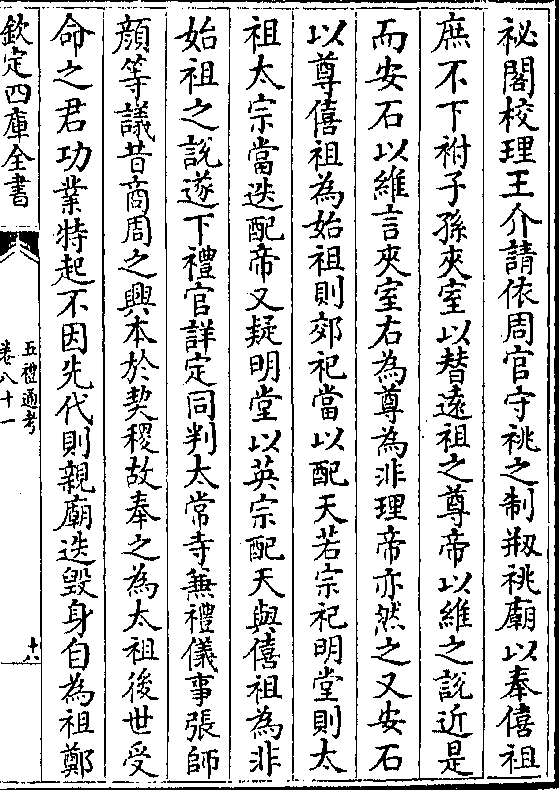 祕閣校理王介請依周官守祧之制剏祧廟以奉僖祖
庶不下祔子孫夾室以替遠祖之尊帝以維之說近是
而安石以維言夾室右為尊為非理帝亦然之又安石
以尊僖祖為始祖則郊祀當以配天若宗祀明堂則太
祖太宗當迭配帝又疑明堂以英宗配天與僖祖為非
始祖之說遂下禮官詳定同判太常寺兼禮儀事張師
顔等議昔商周之興本於契稷故奉之為太祖後世受
命之君功業特起不因先代則親廟迭毀身自為祖鄭
欽定四庫全書
五禮通考
卷八十一
十八